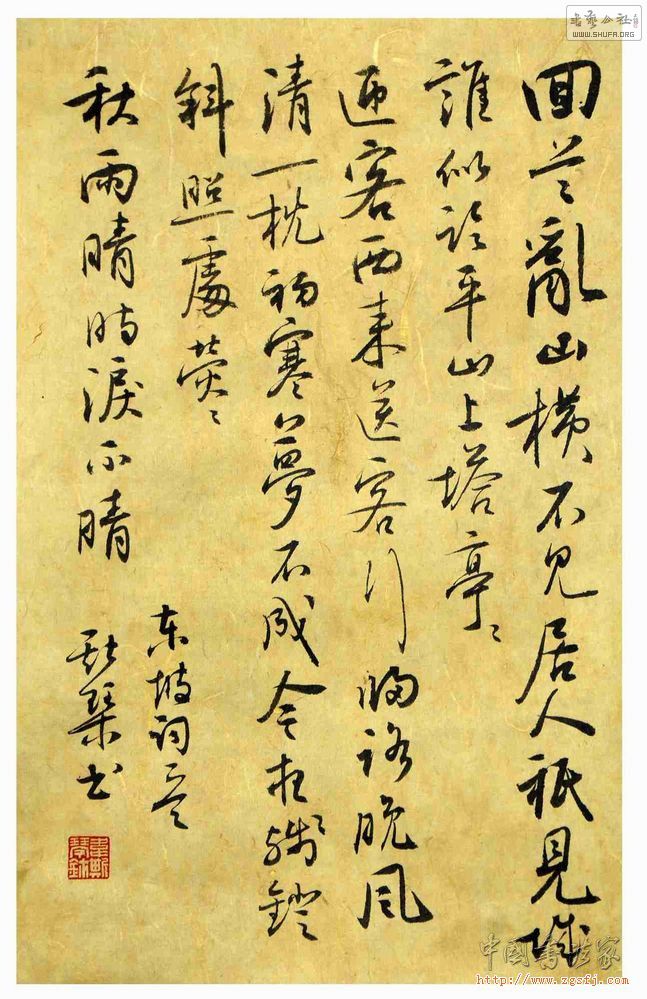 回首亂山橫不見居人祇見城
誰似臨平山上塔亭〻
迎客西來送客行歸路晚風
清一枕初寒夢不成今夜殘鐙
斜照處熒〻
秋雨晴時淚不晴
东坡词一首
斯琴书
韋斯琴鉥
书艺公社
WWW.SHUFA.ORG
中國書法家